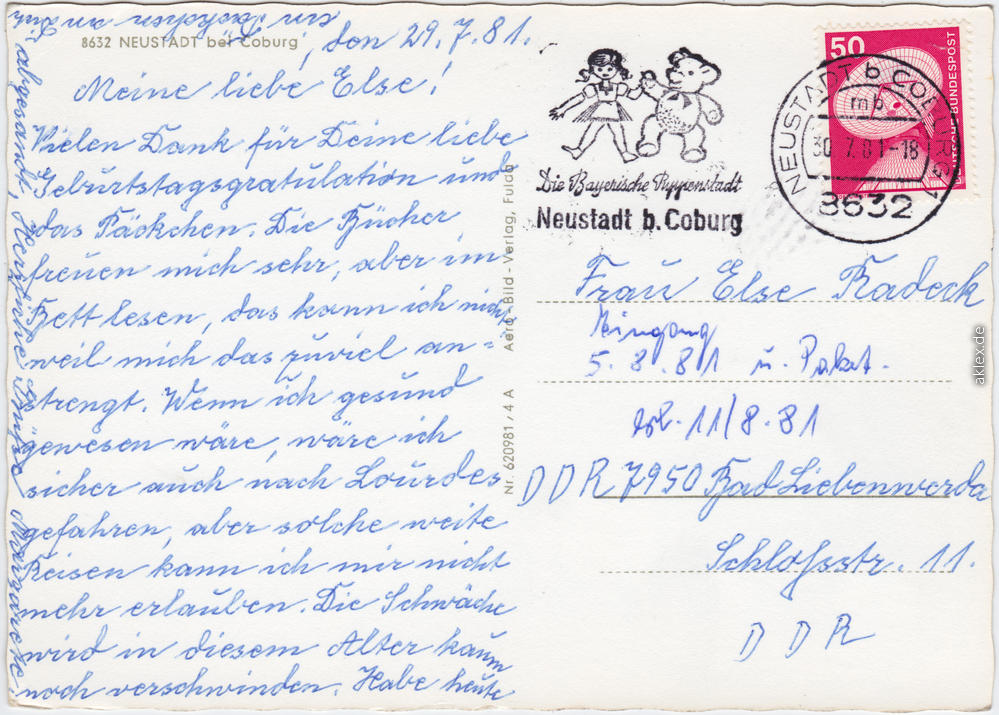 8632 NEUSTADT bei Coburg
den 29.7.81.
Meine liebe Else!
Vielen Dank für Deine liebe
Geburtstagsgratulation und
das Päckchen. Die Bücher
freuen mich sehr, aber im
Bett lesen, das kann ich nicht,
weil mich das zuviel an=
strengt. Wenn ich gesund
gewesen wäre, wäre ich
sicher auch nach Lourdes
gefahren, aber solche weite
Reisen kann ich mir nicht
mehr erlauben. Die Schwäche
wird in diesem Alter kaum
noch verschwinden. Habe heute
ein Päckchen an Dich
abgesandt. Herzliche Grüße Margarete.
Nr. 620981/4 A Aero-Bild-Verlag, Fulda
Die Bayerische Puppenstadt
Neustadt b. Coburg
50
DEUTSCHE BUNDESPOST
NEUSTADT b COBURG 1
mb
30.7.81-18
8632
Frau Else Radeck
Eingang
5.8.81 u. Paket.
11/8.81
DDR 7950 Bad Liebenwerda
Schloßstr. 11.
DDR
aklex.de